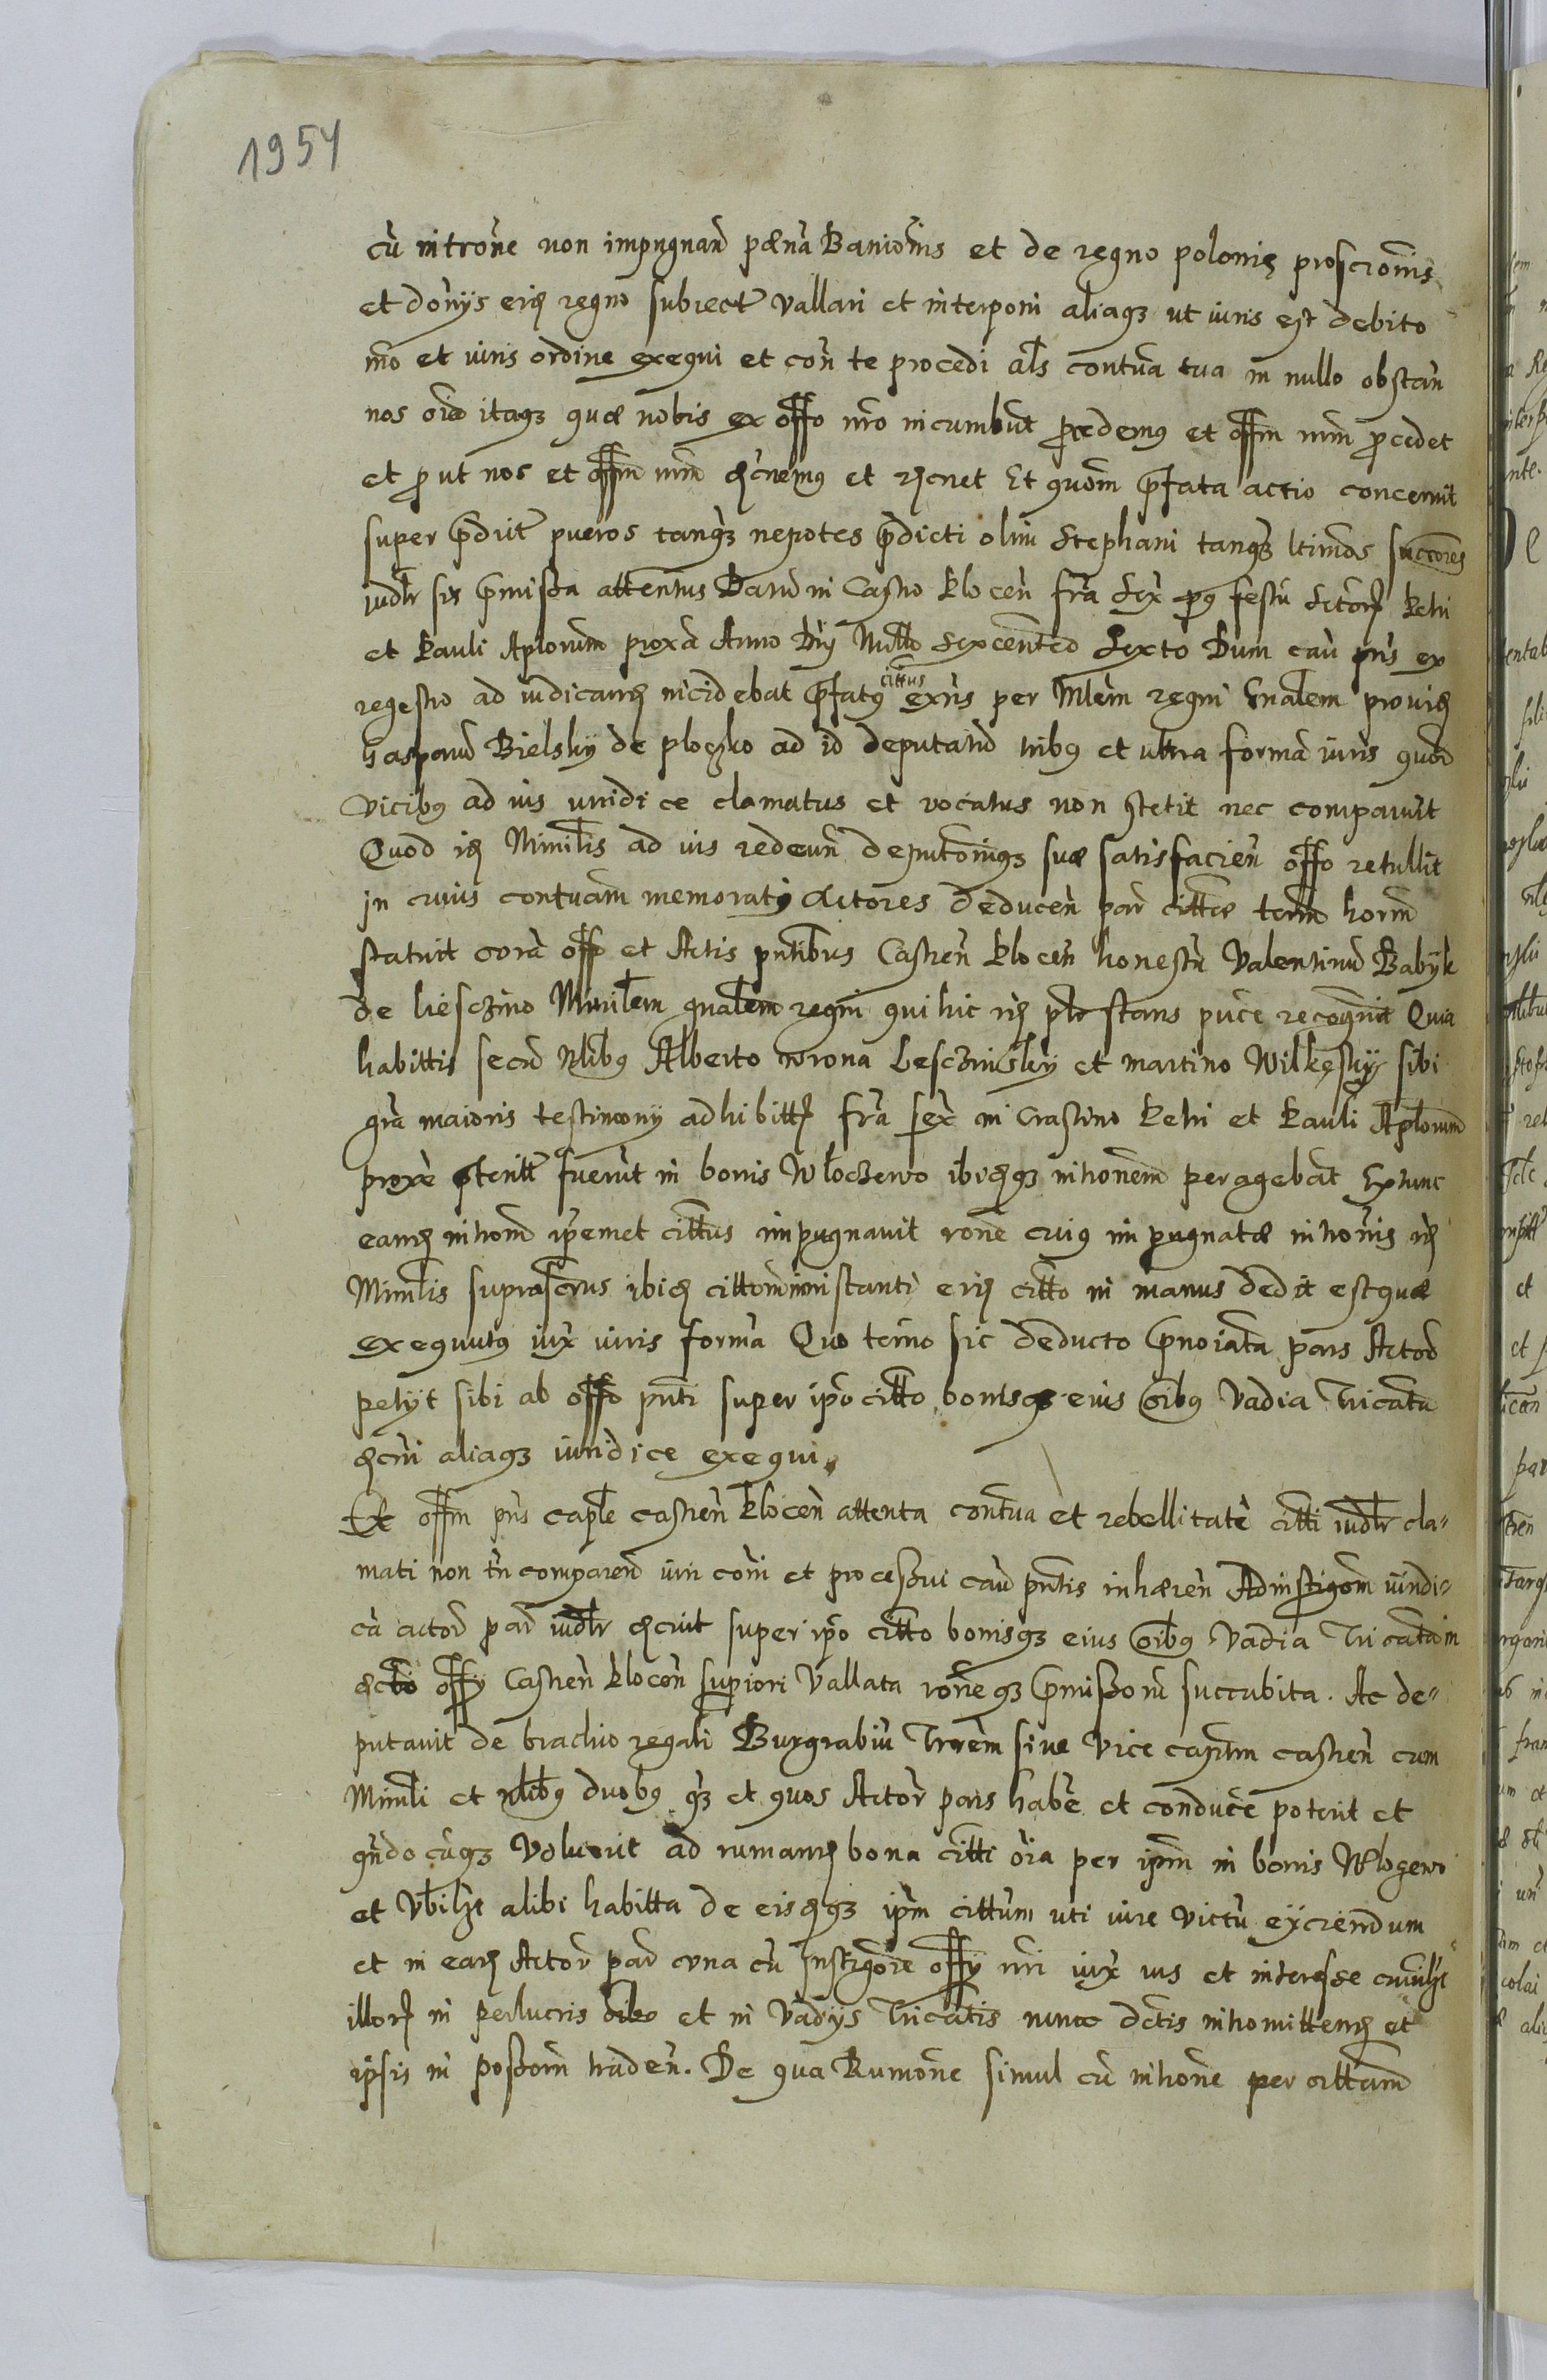 1954
cù intrône non impugnan pœna Banionis et de regno polonię proscrōnis
et donÿs eiq regno subiect vallari et interponi aliaqz ut iuris est debito
mo et iuris ordine exequi et con te procedi als contua tua in nullo obstan
nos oio itaqz quæ nobis ex offo nro incumbut pcedemq et offm nrm pcedet
et put nos et offm nrm et Et quom pfata actio concernit
super pueros tanqz nepotes pdicti olim Stephani tanqz ltimos succores
iudlr sis pmissa attentus Datu in Castro Plocen fra Sex pq festu Sctorz Petri
et Pauli Aplorum proxa Anno Dnj Millo sexcenteo Sexto Dum cau pns ex
regestro ad iudicand incidebat pfatq cittus exns per Mlem regni Gnalem prouid
Gasparu Bielsky de ploczko ad id deputatu tribq et ultra forma iuris quor
vicibq ad ius iuridice clamatus et vocatus non stetit nec comparuit
Quod id Minilis ad ius redeun deputonigz suæ satisfacien offo retullit
jn cuius contuam memoratj Actores deducen par citte term horm
statuit cora offo et Actis pntibus Castren Plocen honestu Valentinu Babÿk
de liesczino Minilem gnalem regni qui hic id stans puce recognit Quia
habittis secu nlibq Alberto wrona Lesczinsky et martino Wilkęsky sibi
gra maioris testimony adhibittz fra sex in crastino Petri et Pauli Aplorum
proxe pterill fuerut in bonis Wloczewo ibidqz intronem peragebat Extunc
eand introm ipemet cittus impugnauit rone cuiq impugnatæ intronis id
Minilis suprascrus ibid cittom instanti eid citto in manus dedit estquæ
exequutq iux iuris forma Quo termo sic deducto pnoiata pars Actor
petÿt sibi ab offo pnti super ipo citto bonisqz eius oibq Vadia Tricata
aliaqz iuridice exequi
Et offm pns caple castren Plocen attenta contua et rebellitate citti iudlr cla"
mati non tn comparen iuri coni et processui cau pntis inhæren Ad instigom iuridi"
ca actor par iudlr super ipo citto bonisqz eius oibq Vadia Tricata in
offÿ Castren Plocen superiori Vallata roneqz pmissoru succubita. Ac de"
putauit de brachio regali Burgrabiu siue Vice captm castren cum
Minili et nlibq duobq qz et quos Actor pars habe et conduce poterit et
qndocuqz Voluerit ad rumand bona citti oia per ipm in bonis Wlogewo
et Vbilzt alibi habitta de eisdqz ipm cittum uti iure victu eÿciendum
et in ead Actor par vna cu Instigore offÿ nri iux ius et interesse cuiuslzt
illorz in perlucris et in Vadÿs Tricatis nunc dctis intromittend et
ipsis in possom traden. De qua Rumone simul cu introne per cittam